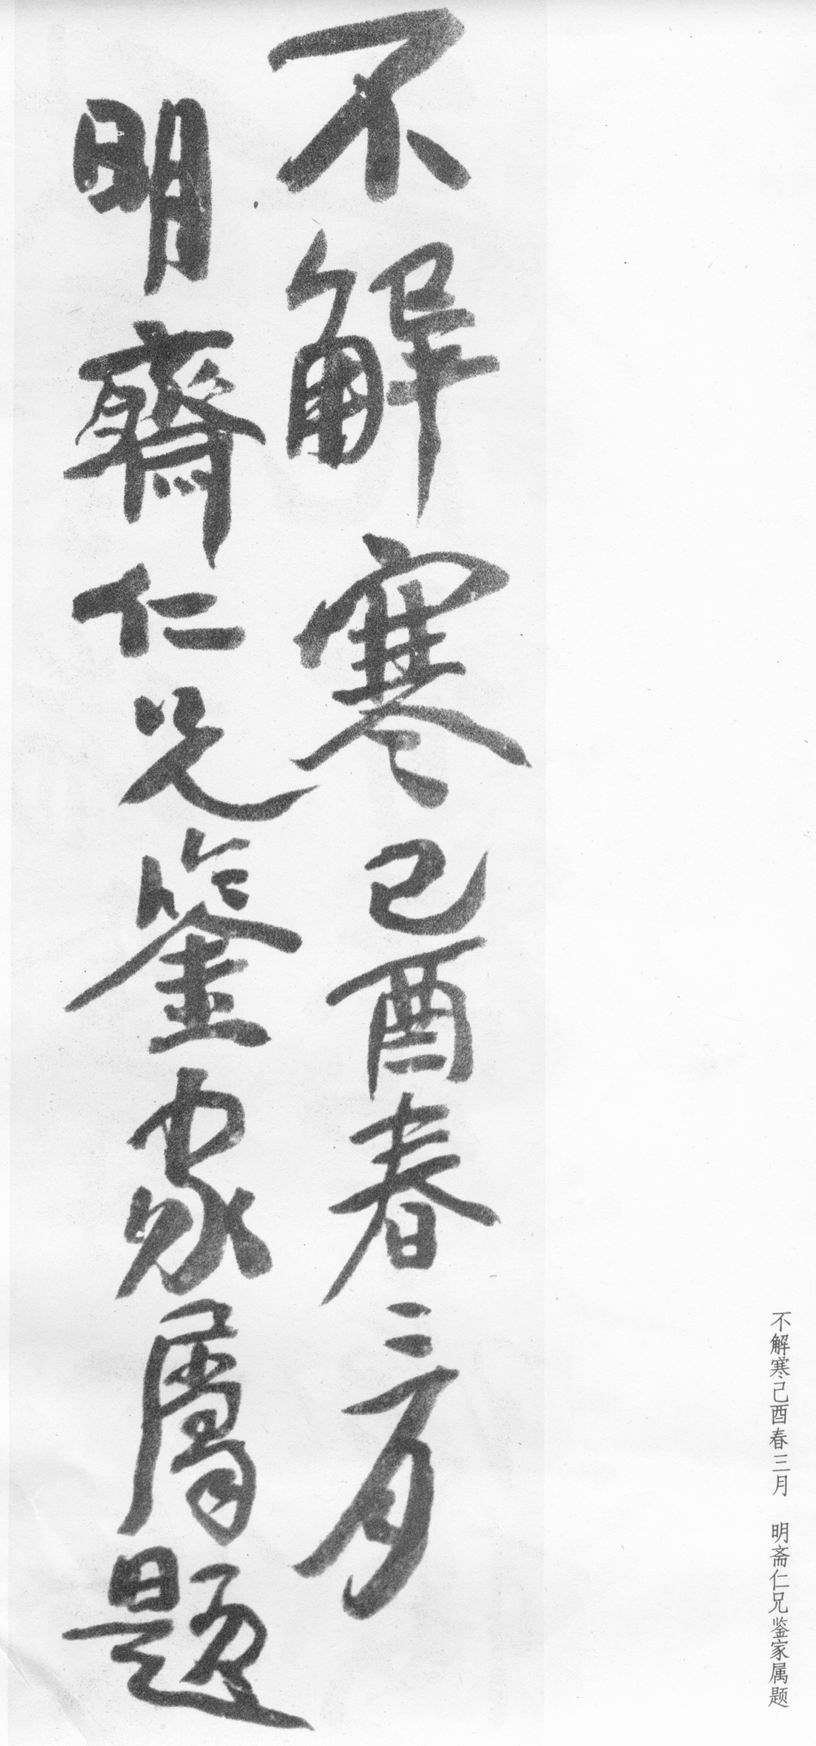 不解寒己酉春三月
明齋仁兄鉴家屬題
不解寒己酉春三月　明斋仁兄鉴家属题